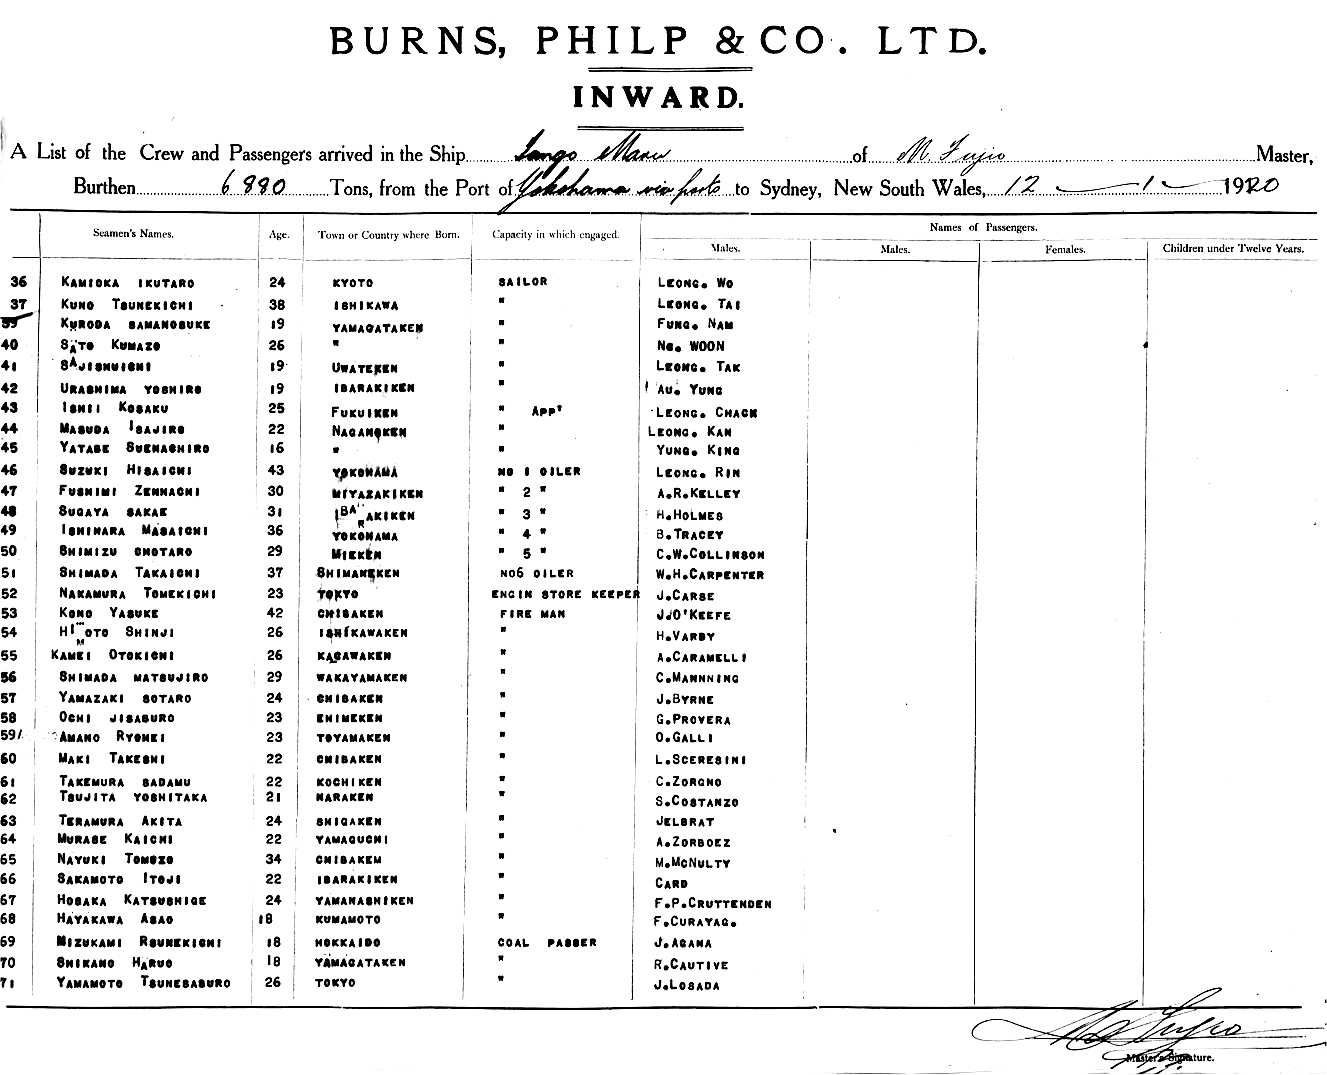 BURNS, PHILP & CO. LTD.
INWARD.
A List of the Crew and Passengers arrived in the Ship Tango Maru of M. Fujio Master,
Burthen 6880 Tons, from the Port of Yokohama via ports to Sydney, New South Wales, 12 - 1 - 1920
Names of Passengers.
Seamen's Names. Age. Town or Country where Born. Capacity in which engaged. Males. Males. Females. Children under Twelve Years.
36 KAMIOKA IKUTARO 24 KYOTO SAILOR LEONG. WO
37 KUNO TSUNEKICHI 38 ISHIKAWA " LEONG. TAI
39 KURODA SAMANOSUKE 19 YAMAGATAKEN " FUNG. NAM
40 SATO KUMAZO 26 " " NG. WOON
41 SAJISHUICHI 19 UWATEKEN " LEONG. TAK
42 URASHIMA YOSHIRO 19 IBARAKIKEN " AU. YUNG
43 ISHII KOSAKU 25 FUKUIKEN " APPT LEONG. CHACK
44 MASUDA ISAJIRO 22 NAGANOKEN " LEONG. KAN
45 YATABE SUENACHIRO 16 " " YUNG. KING
46 SUZUKI HISAICHI 43 YOKOHAMA NO 1 OILER LEONG. RIN
47 FUSHIMI ZENNACHI 30 MIYAZAKIKEN " 2 " A.R.KELLEY
48 SUGAYA SAKAE 31 IBARAKIKEN " 3 " H.HOLMES
49 ISHIHARA MASAICHI 36 YOKOHAMA " 4 " B.TRACEY
50 SHIMIZU CHOTARO 29 MIEKEN " 5 " C.W.COLLINSON
51 SHIMADA TAKAICHI 37 SHIMANEKEN NO6 OILER W.H.CARPENTER
52 NAKAMURA TOMEKICHI 23 TOKYO ENGIN STORE KEEPER J.CARSE
53 KONO YASUKE 42 CHIBAKEN FIRE MAN J.JO'KEEFE
54 HIMOTO SHINJI 26 ISHIKAWAKEN " H.VARBY
55 KAMEI OTOKICHI 26 KAGAWAKEN " A.CARAMELLI
56 SHIMADA MATSUJIRO 29 WAKAYAMAKEN " C.MANNNING
57 YAMAZAKI SOTARO 24 CHIBAKEN " J.BYRNE
58 OCHI JISABURO 23 EHIMEKEN " G.PROVERA
59 AMANO RYOHEI 23 TOYAMAKEN " O.GALLI
60 MAKI TAKESHI 22 CHIBAKEN " L.SCERESINI
61 TAKEMURA SADAMU 22 KOCHIKEN " C.ZORGNO
62 TSUJITA YOSHITAKA 21 NARAKEN " S.COSTANZO
63 TERAMURA AKITA 24 SHIGAKEN " JELBRAT
64 MURASE KAICHI 22 YAMAGUCHI " A.ZORBOEZ
65 NAYUKI TOMOZO 34 CHIBAKEM " M.MCNULTY
66 SAKAMOTO ITOJI 22 IBARAKIKEN " CARD
67 HOSAKA KATSUSHIGE 24 YAMANASHIKEN " F.P.CRUTTENDEN
68 HAYAKAWA ASAO 18 KUMAMOTO " F.CURAYAG.
69 MIZUKAMI RSUNEKICHI 18 HOKKAIDO COAL PASSER J.AGANA
70 SHIKANO HARUO 18 YAMAGATAKEN " R.CAUTIVE
71 YAMAMOTO TSUNESABURO 26 TOKYO " J.LOSADA
M Fujio
Master's Signature.